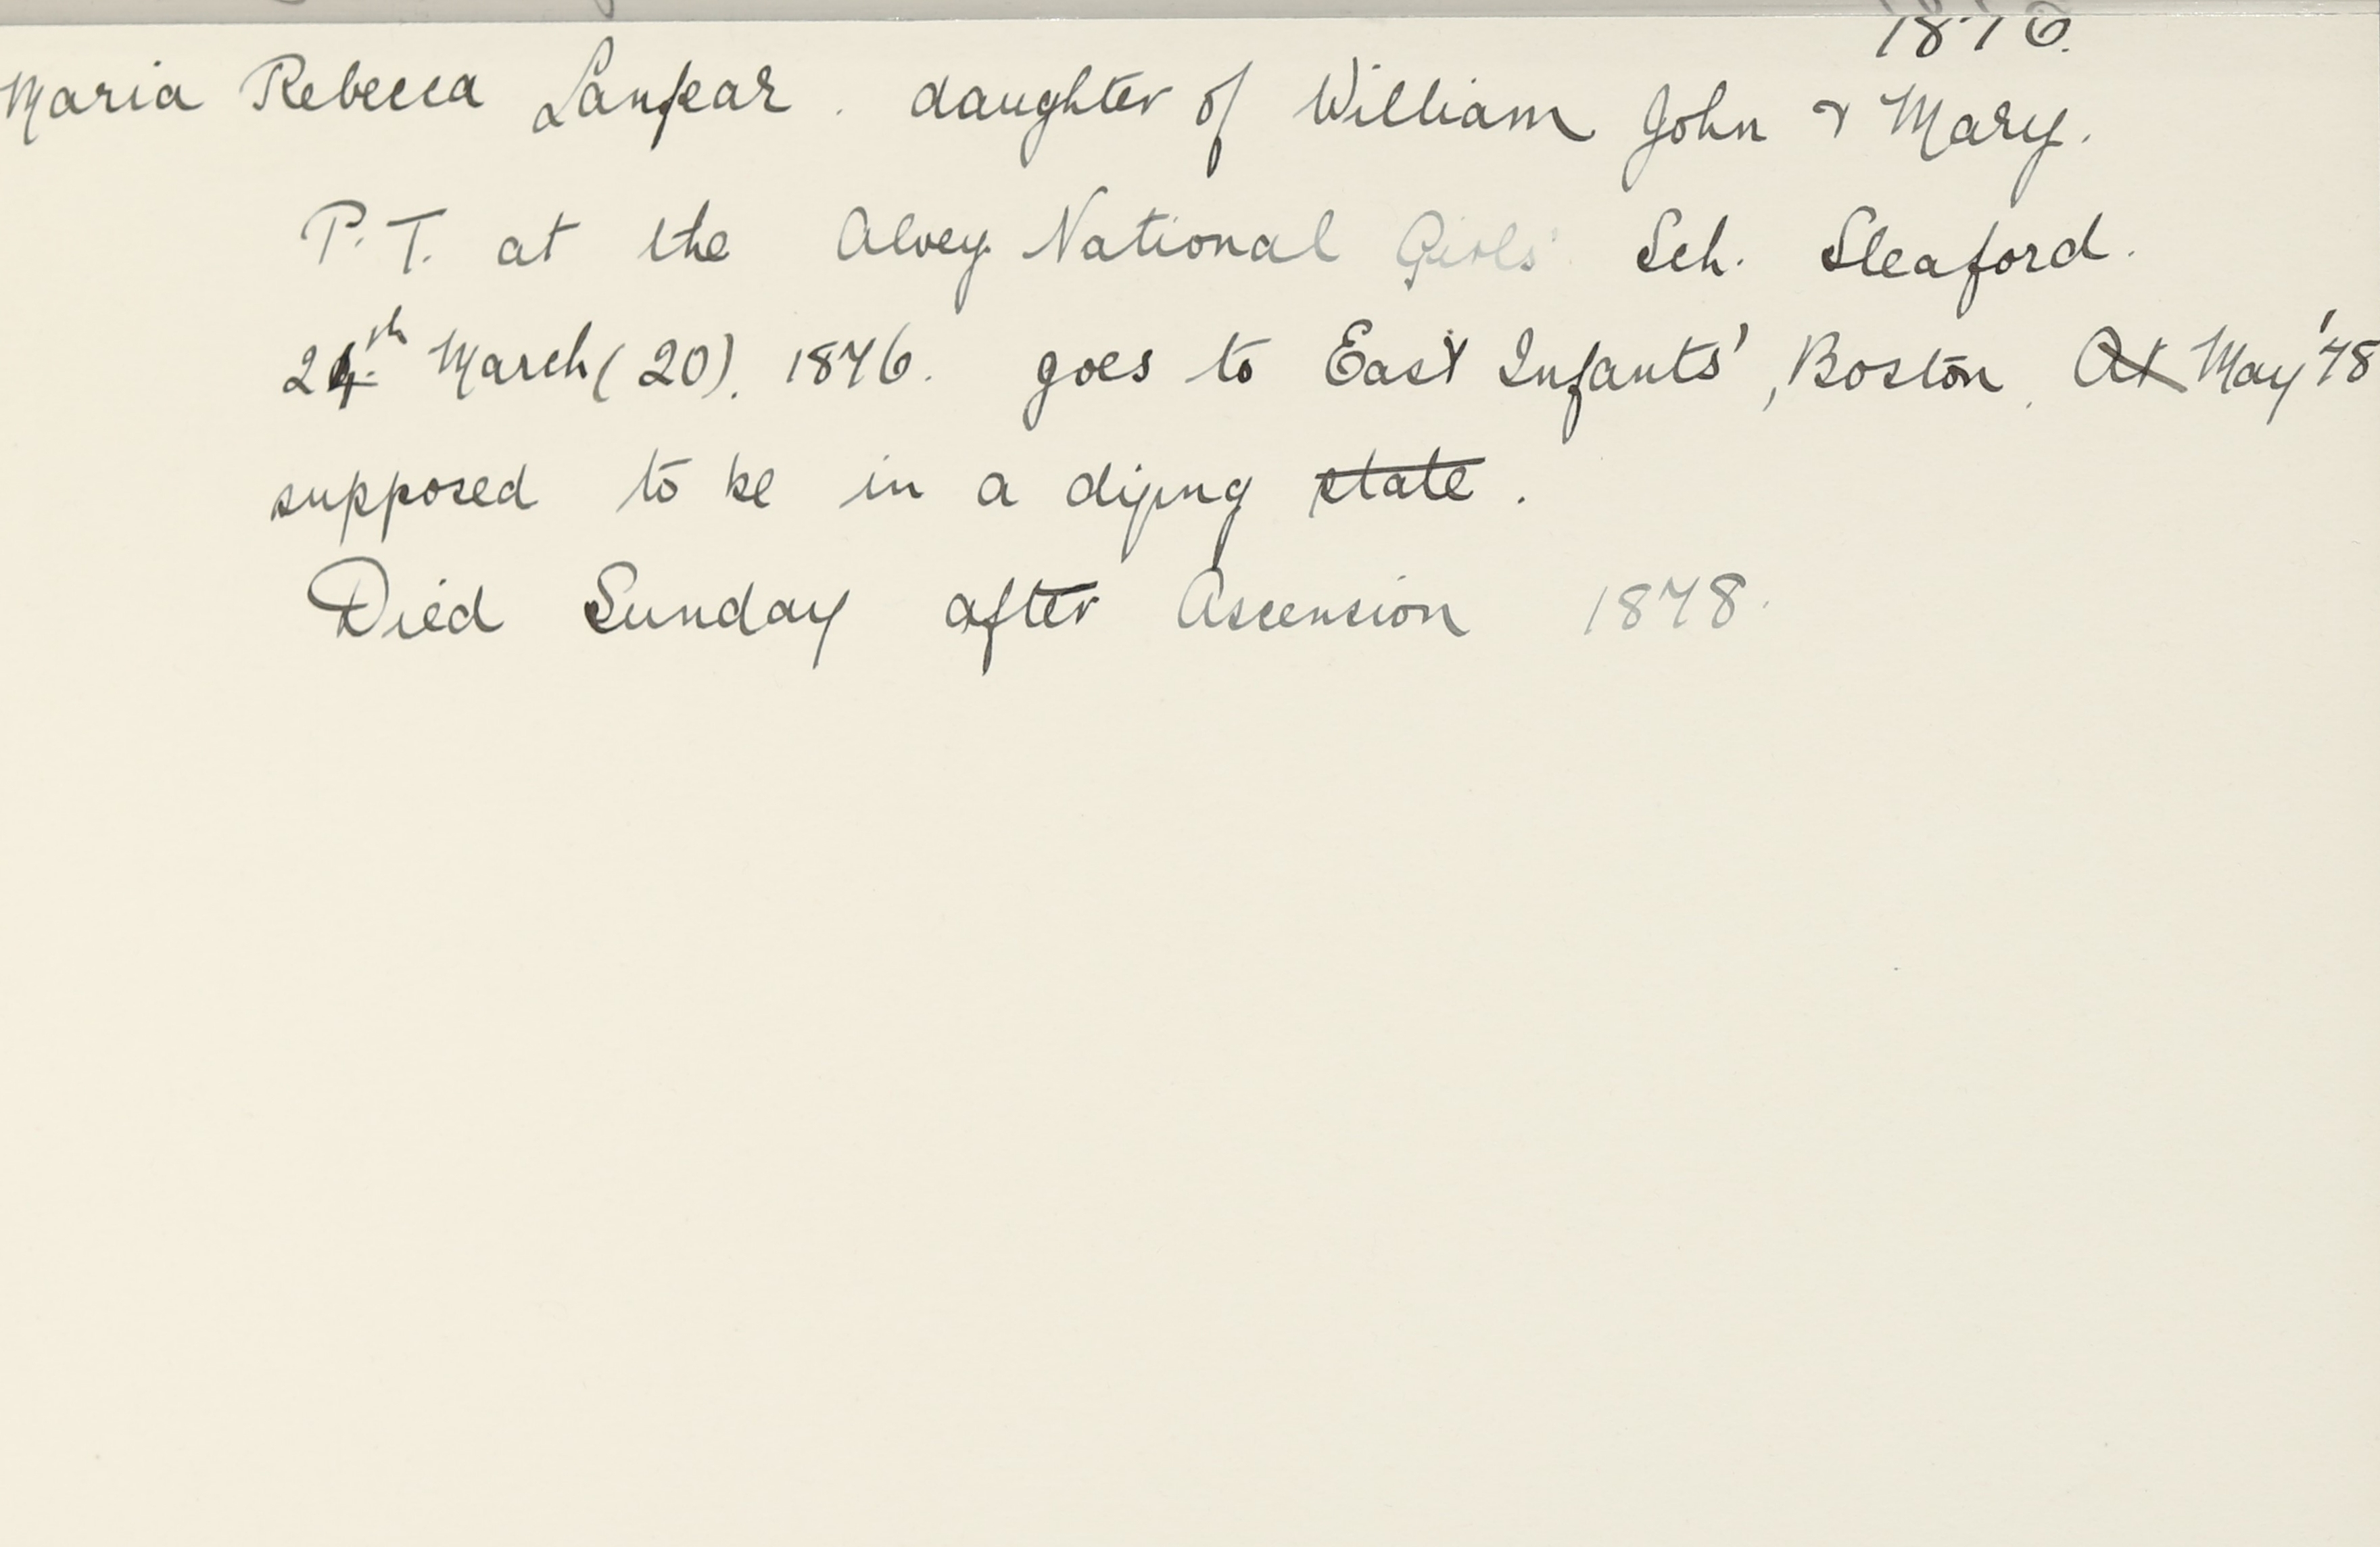 1876.
Maria Rebecca Lanfear. daughter of William John & Mary.
P.T. at the Alvey National Girls' Sch. Sleaford.
24th March (20). 1876. goes to East Infants', Boston. At May '78
supposed to be in a dying state.
Died Sunday after Ascension 1878.